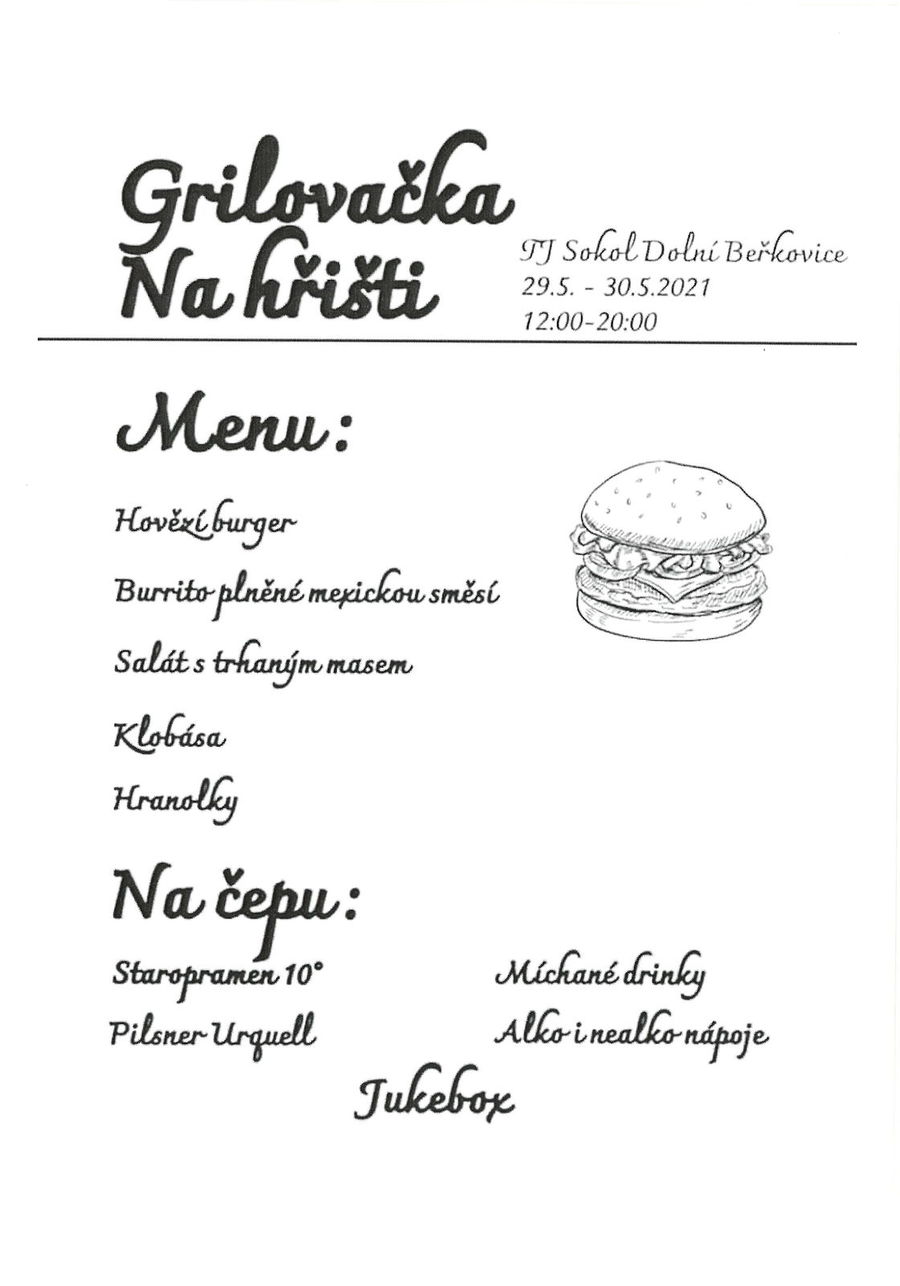 Grilovačka
Na hřišti
TJ Sokol Dolní Beřkovice
29.5. - 30.5.2021
12:00-20:00
Menu:
Hovězí burger
Burrito plněné mexickou směsí
Salát s trhaným masem
Klobása
Hranolky
Na čepu:
Staropramen 10°
Pilsner Urquell
Míchané drinky
Alko i nealko nápoje
Jukebox